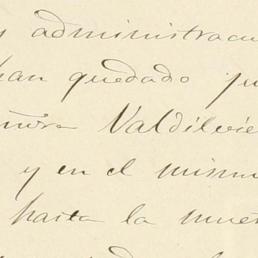 y administracio
han quedado pu
eñora Valdilvie
y en el mismo
hasta la muer